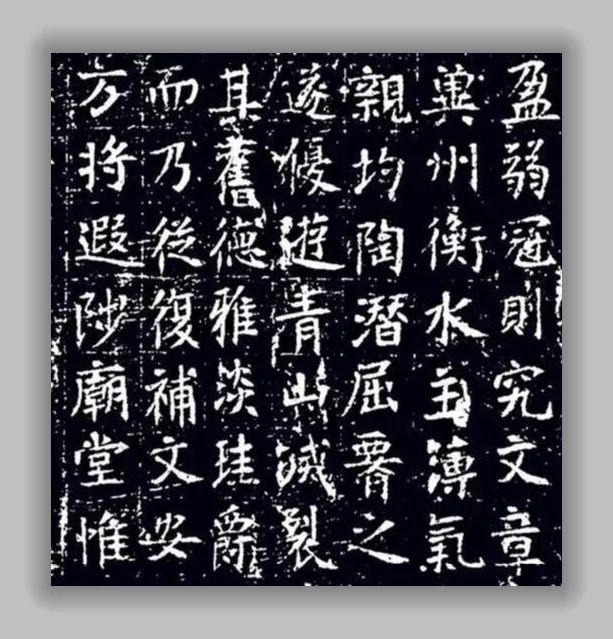 盈弱冠則究文章
冀州衡水主薄氣
親均陶潛屈腰之
遂優遊青山滅裂
其舊德雅淡珪爵
而乃從復補文安
方將遐陟廟堂惟